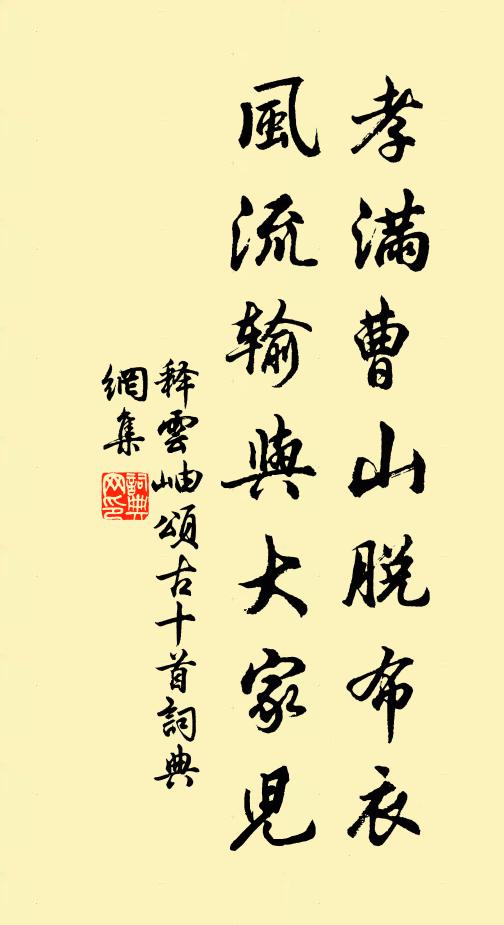 孝滿曹山脱布衣
風流输與大家兒
释雲岫頌古十首詞典
網集
詞典
网印